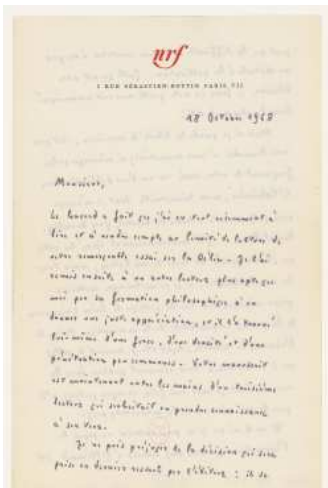 nrf
5 RUE SÉBASTIEN-BOTTIN PARIS VII
18 Octobre 1968
Monsieur,
Le hasard a fait que j'ai eu tout récemment à
lire et à rendre compte au Comité de lecture de
votre remarquable essai sur la
remis ensuite à un autre lecteur plus apte que
moi par sa formation philosophique à en
donner une juste appréciation, et il l'a trouvé
lui-même d'une force, d'une densité et d'une
pénétration peu communes. Votre manuscrit
est maintenant entre les mains d'un troisième
lecteur qui souhaitait en prendre connaissance
à son tour.
Je ne puis préjuger de la décision qui sera
prise en dernier ressort par l'éditeur : il se